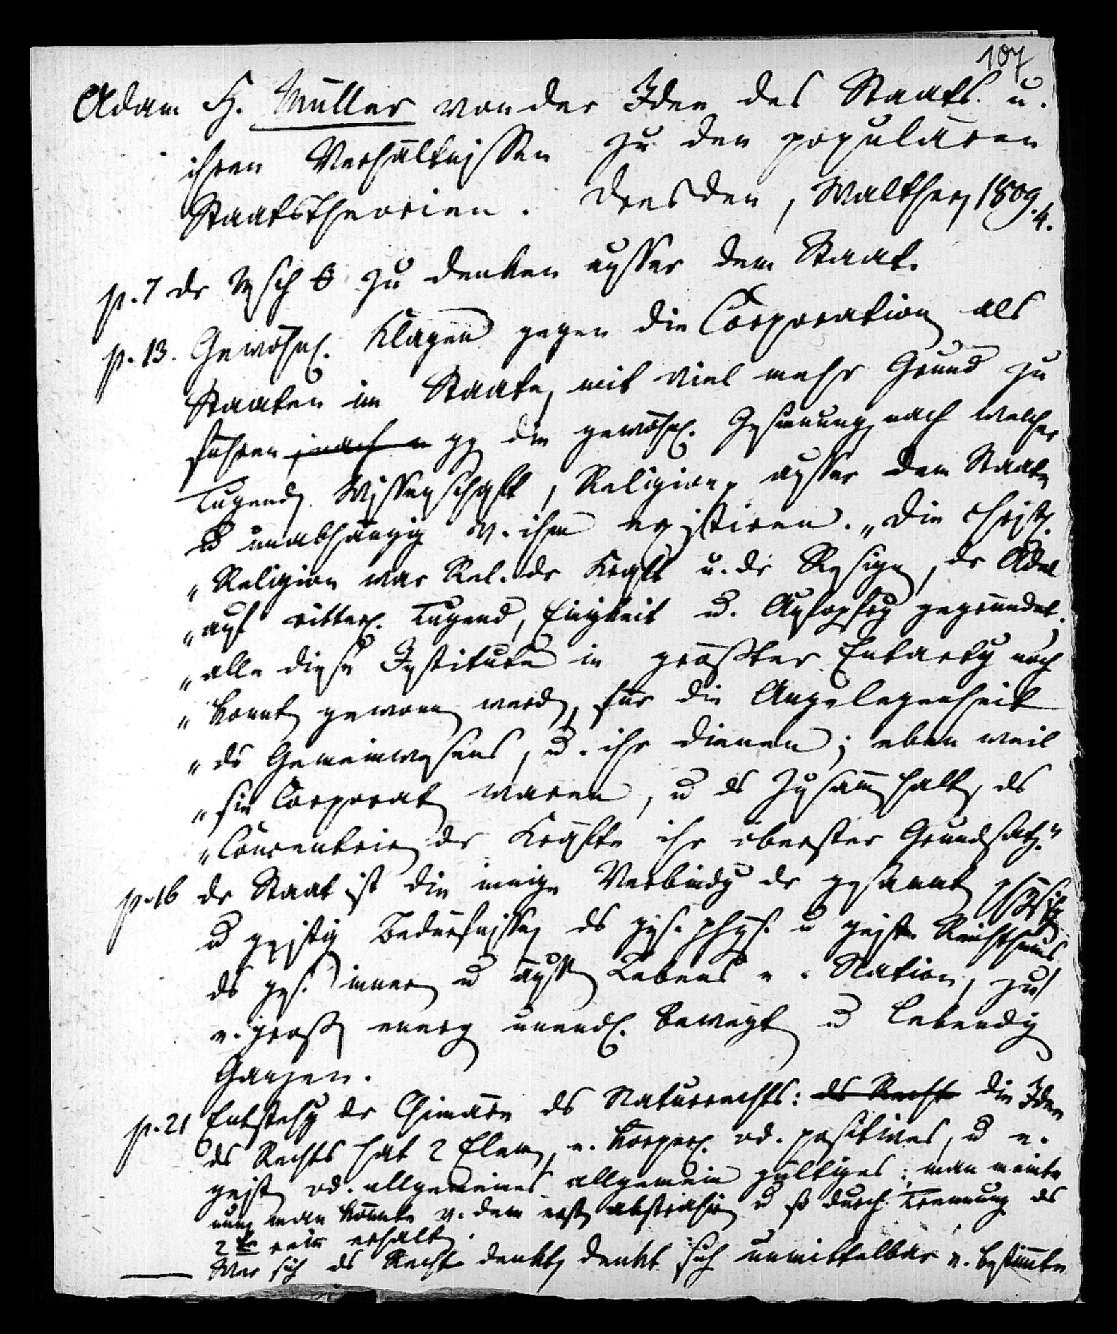 107
Adam H. Müller von der Idee des Staats. u.
ihren Verhältnissen zu den populären
Staatstheorien. Dresden, Walther, 1809. 4.
p. 7 der Msch zu denken ausser dem Staat.
p. 13. Gewöhnl. Klagen gegen die Corporation als
Staaten im Staate, mit viel mehr Grund zu
führen gg die gewöhnl. Gesinnung nach welcher
Tugend, Wissenschaft, Religion ausser dem Staate
u unabhängig v. ihm existiren. „Die christl.
„Religion war Rel. der Kraft u. der Resign, der Adel
„auf ritterl. Tugend, Einigkeit u. Aufopferg gegründet.
„alle diese Institute in größter Entartg noch
„konnt gewonn werd, für die Angelegenheit
„ds Gemeinwesens, u. ihr dienen; eben weil
„sie Corporat waren, u ds Zusamhalt, ds
„Concentrir der Kräfte ihr oberster Grundsatz."
p. 16 der Staat ist die innige Verbindg der gesammt physisch
u geistig Bedürfnisse, ds ges. phys. u geist Reichthums
ds ges. innern u äuß Lebens e. Nation, zu
e. groß energ unendl. bewegt u lebendig
Ganzen.
p. 21 Entstehg der Chimäre ds Naturrechts: ds Rechts die Idee
ds Rechts hat 2 Elem, e. körperl. od. positives, u e.
geist od. allgemeines allgemein gültiges; man meinte
nun man könnte v. dem erst abstrahir u so durch Trennung ds
2te rein erhalt.
Wer sich ds Recht denkt, denkt sich unmittelbar e. bestimmte